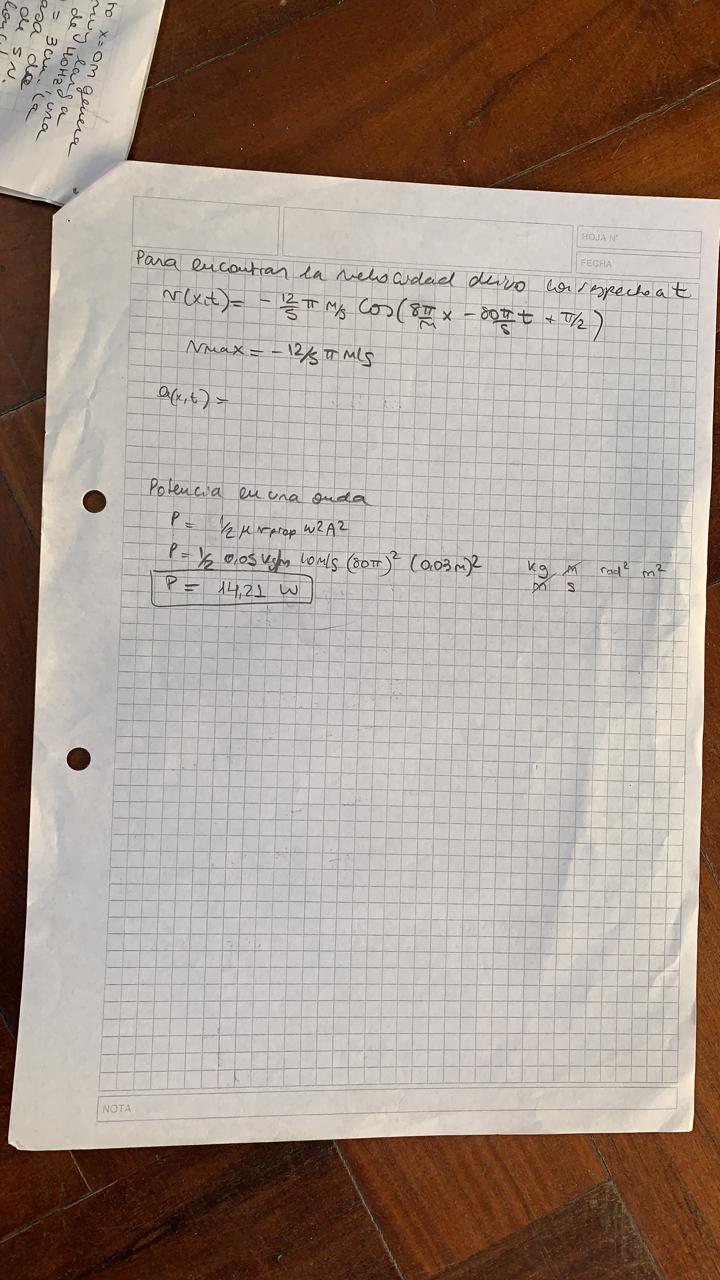 to x=0m
muy largenera
de 40Hz y a
= 3cm, una
da da la
de 5 N.
HOJA N°
FECHA
Para encontrar la velocidad derivo con respecto a t
v(x,t) = - 12/5 π m/s cos( 8π/m x - 80π/s t + π/2 )
vmax = - 12/5 π m/s
a(x,t) =
Potencia en una onda
P = 1/2 μ vprop w² A²
P = 1/2 0,05 kg/m 10 m/s (80π)² (0,03 m)² kg/m m/s rad² m²
P = 14,21 W
NOTA